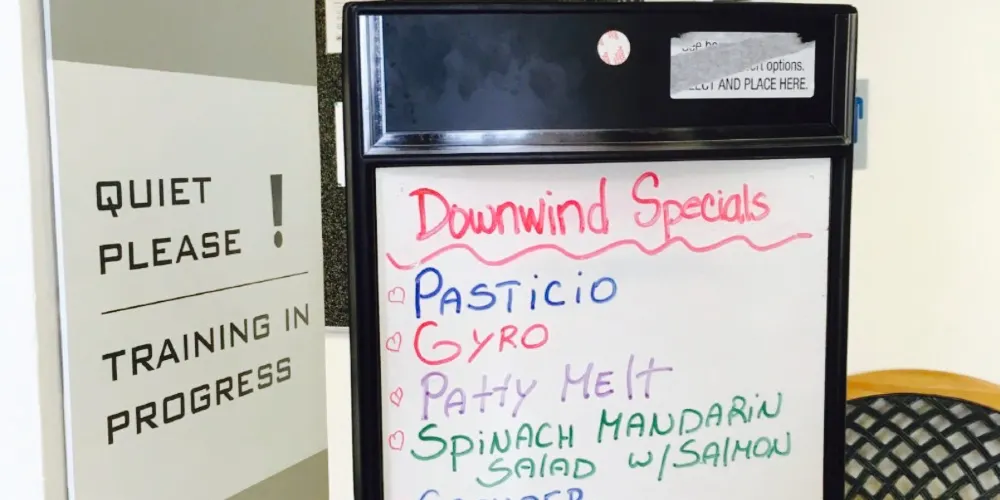 QUIET
PLEASE !
TRAINING IN
PROGRESS
options.
AND PLACE HERE.
Downwind Specials
PASTiCiO
GYRO
PAtty MElt
SPiNACH MANDARiN
SAlAD w/SAlMON